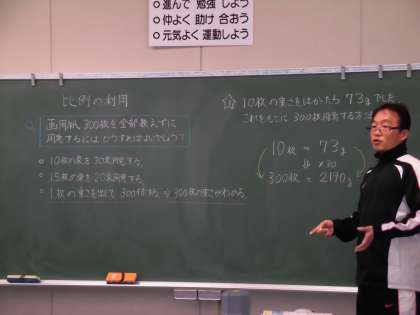 ○進んで 勉強 しよう
○仲よく 助け 合おう
○元気よく 運動しよう
比例の利用
画用紙 300枚を全部数えずに
用意するには どうすればよいでしょう?
○ 10枚の束を30束用意する。
○ 15枚の束を20束用意する。
○ 1枚の重さを出して 300倍する。⇒300枚の重さがわかる。
10枚の重さをはかったら 73gでした
これをもとに 300枚用意する方法
10枚 = 73g
↓×30
300枚 = 2190g